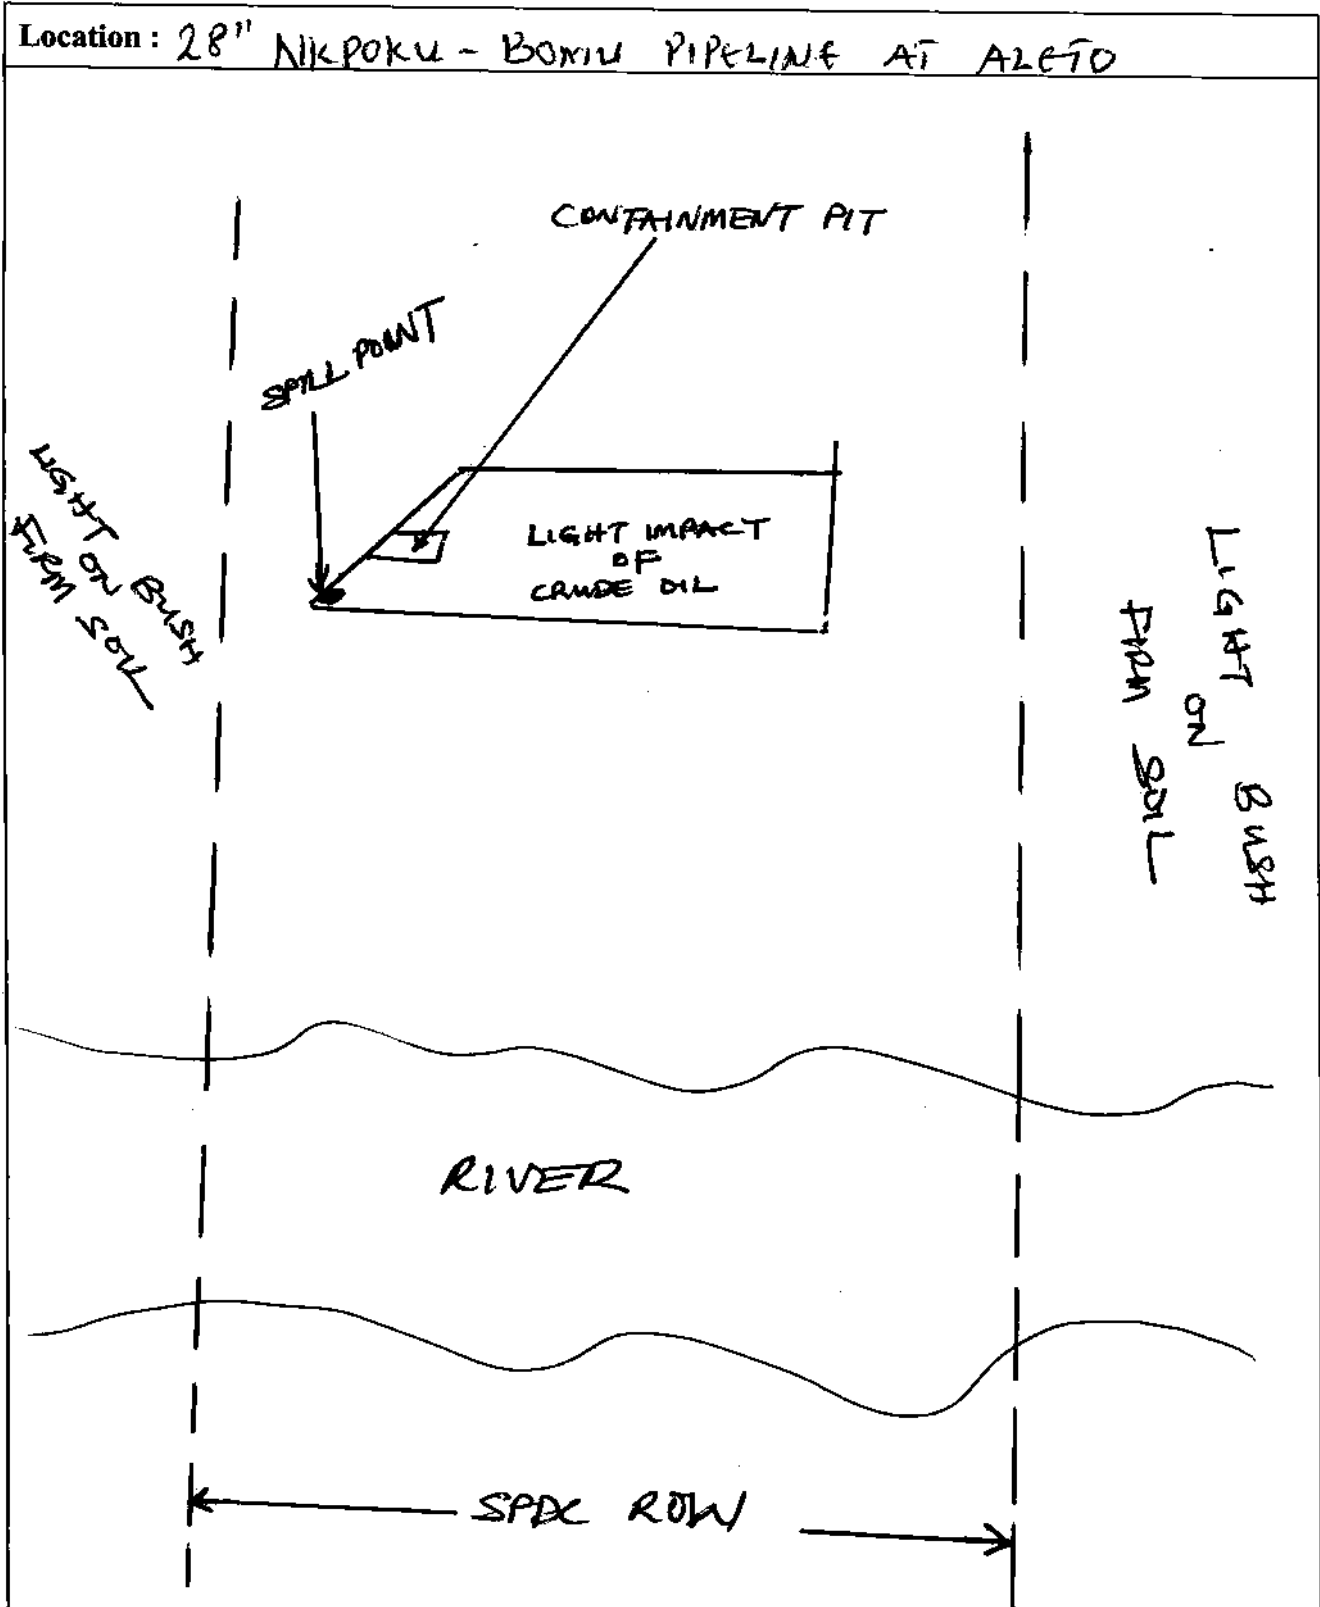 Location : 28" NKPOKU - BONNY PIPELINE AT ALETO
CONTAINMENT PIT
SPILL POINT
LIGHT IMPACT
OF
CRUDE OIL
LIGHT BUSH
ON
FIRM SOIL
LIGHT BUSH
ON
FIRM SOIL
RIVER
SPDC ROW